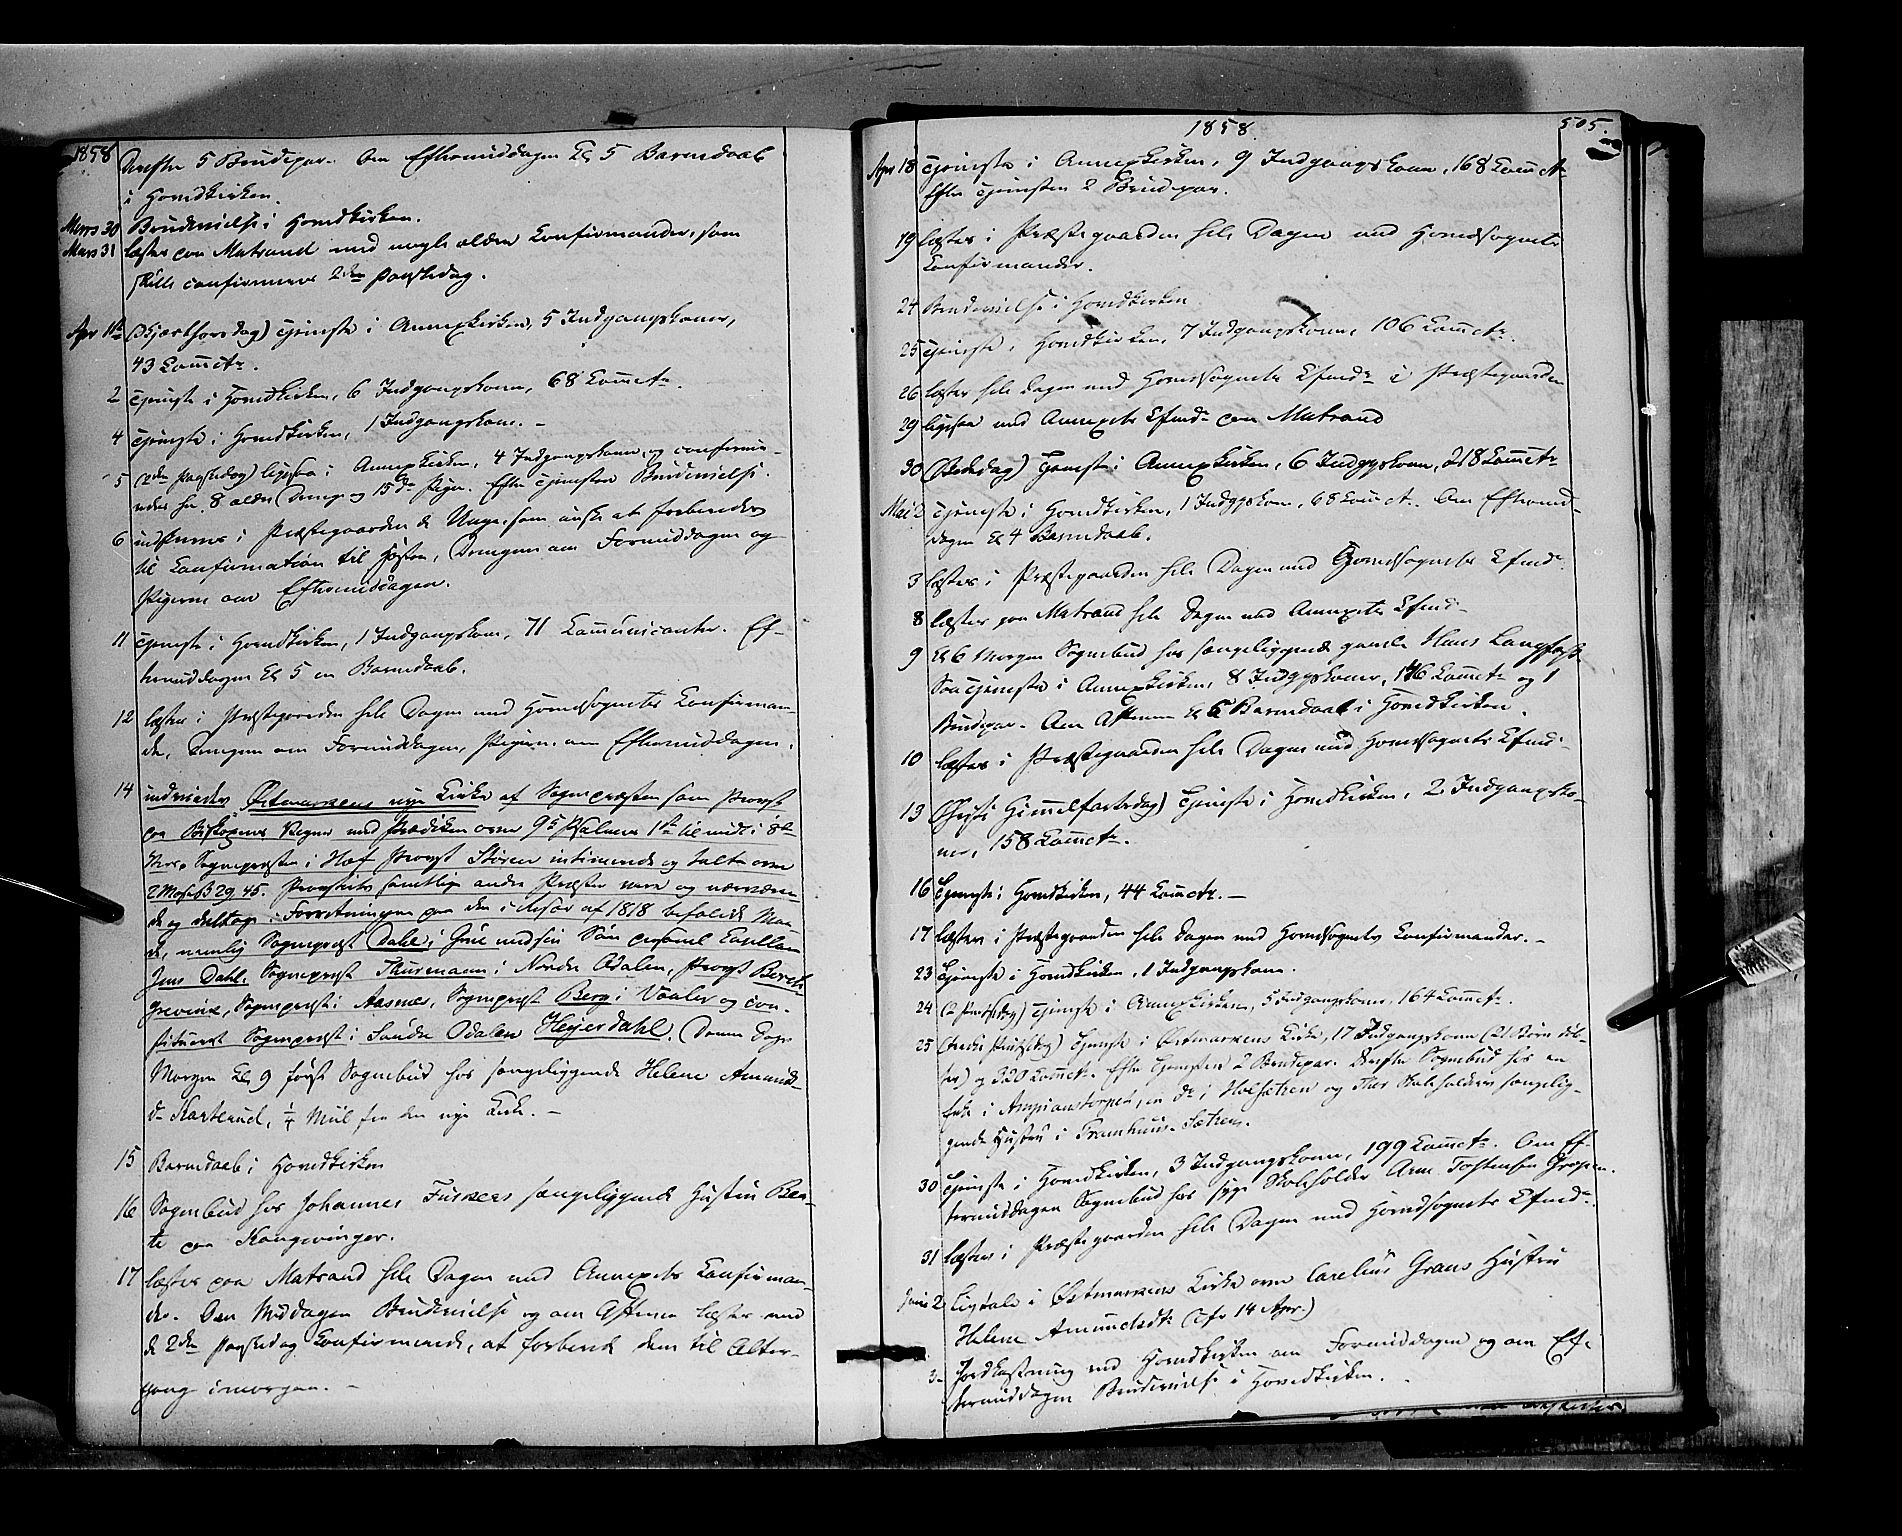 1858
Derefter 5 Brudepar. Om Eftermiddagen Kl 5 Barnedaab
i Hovedkirken.
Marts 30 Brudevielse i Hovedkirken.
Mars 31 læstes paa Matrand med nogle ældre Confirmander, som
skulle confirmeres 2den Paaskedag.
Apr 1ste (Skjærthorsdag) Tjeneste i Annexkirken, 5 Indgangskoner,
43 Commctr.
2 Tjeneste i Hovedkirken, 6 Indgangskoner, 68 Commctr.
4 Tjeneste i Hovedkirken, 1 Indgangskone. –
5 (2den Paaskedag) ligesaa i Annexkirken, 4 Indgangskoner, og confirme-
redes her 8 ældre Drenge og 15 do Piger. Efter Tjenesten Brudevielse.
6 indskreves i Præstegaarden de Unge, som ønske at forberedes
til Confirmation til Høsten, Drengene om Formiddagen og
Pigerne om Eftermiddagen.
11 Tjeneste i Hovedkirken, 1 Indgangskone, 71 Communicanter. Ef-
termiddagen Kl 5 en Barnedaab.
12 læstes i Præstegaarden hele Dagen med Hovedsognets Confirman-
der, Drengene om Formiddagen, Pigerne om Eftermiddagen.
14 indviedes Østmarkens nye Kirke af Sognepræsten som Provst
paa Biskopens Vegne med Prædiken over 95 Psalmes 1ste til midt i 8de
Vers. Sognepræsten i Hof Provst Støren intimerede og talte over
2 Moseb 29. 45. Provstiets samtlige andre Præster vare og nærværen-
de og deltoge i Forretningen paa den i Resol af 1818 befalede Maa-
de, nemlig Sognepræst Dahl i Grue med sin Søn personel Capellan
Jens Dahl, Sognepræst Thurmann i Nordre Odalen, Provst Berch-
grevink, Sognepræst i Aasnes, Sognepræst Berg i Vaaler og con-
stitueret Sognepræst i Søndre Odalen Heyerdahl. (Denne Dags
Morgen Kl 9 først Sognebud hos sengeliggende Helene Amunds-
dr Karterud, 1/4 Miil fra den nye Kirke. –
15 Barnedaab i Hovedkirken
16 Sognebud hos Johannes Fuskers sengeliggende Hustru Ber-
te paa Kongsvinger.
17 læstes paa Matrand hele Dagen med Annexets Confirman-
der. Om Middagen Brudevielse og om Aftenen læstes med
de 2den Paaskedag Confirmerede, at forberede dem til Alter-
gang imorgen. –
1858. 505.
Apr 18 Tjeneste i Annexkirken, 9 Indgangskoner, 168 Commctr
Efter Tjenesten 2 Brudepar.
19 læstes i Præstegaarden hele Dagen med Hovedsognets
Confirmander.
24 Brudevielse i Hovedkirken
25 Tjeneste i Hovedkirken, 7 Indgangskoner, 106 Commctr.
26 læstes hele Dagen med Hovedsognets Cfmdr i Præstegaarden
29 ligesaa med Annexets Cfmdr paa Matrand
30 (Bededag) Tjeneste i Annexkirken, 6 Indgangskoner, 218 Commctr
Mai 2 Tjeneste i Hovedkirken, 1 Indggskone, 68 Commct. Om Eftermid-
dagen Kl 4 Barnedaab.
3 læstes i Præstegaarden hele Dagen med Hovedsognets Cfmdr.
8 læstes paa Matrand hele Dagen med Annexets Cfmdr
9 Kl 6 Morgen Sognebud hos sengeliggende gamle Hans
Saa Tjeneste i Annexkirken, 8 Indggskoner, 146 Commctr og 1
Brudepar. Om Aftenen Kl 6 Barnedaab i Hovedkirken.
10 læstes i Præstegaarden hele Dagen med Hovedsognets Cfmdr.
13 (Christi Himmelfartsdag) Tjeneste i Hovedkirken, 2 Indgangsko-
ner, 158 Commctr.
16 Tjeneste i Hovedkirken, 44 Commctr. –
17 læstes i Præstegaarden hele Dagen med Hovedsognets Confirmander. –
23 Tjeneste i Hovedkirken, 1 Indgangskone.
24 (2 Pintsedag) Tjeneste i Annexkirken, 5 Indgangskoner, 164 Commctr.
25 (tredie Pintsedag) Tjeneste i Østmarkens Kirke, 17 Indgangskoner (21 Børn døb-
tes) og 320 Commctr. Efter Tjenesten 2 Brudepar. Derefter Sognebud hos en
Enke i Ampianstorpet, en do i Holsætren og Thor Skoleholders sengelig-
gende Hustru i Tranhuus-Sætren.
30 Tjeneste i Hovedkirken, 3 Indgangskoner, 199 Commctr. Om Ef-
termiddagen Sognebud hos syge Skoleholder Arne Torstensen Gropen.
31 læstes i Præstegaarden hele Dagen med Hovedsognets Cfmdr.
Juni 2 Ligtale i Østmarkens Kirke over Carelius Grans Hustru
Helene Amundsdtr (cfr 14 Apr.)
3 Jordkastning ved Hovedkirken om Formiddagen og om Ef-
termiddagen Brudevielse i Hovedkirken.